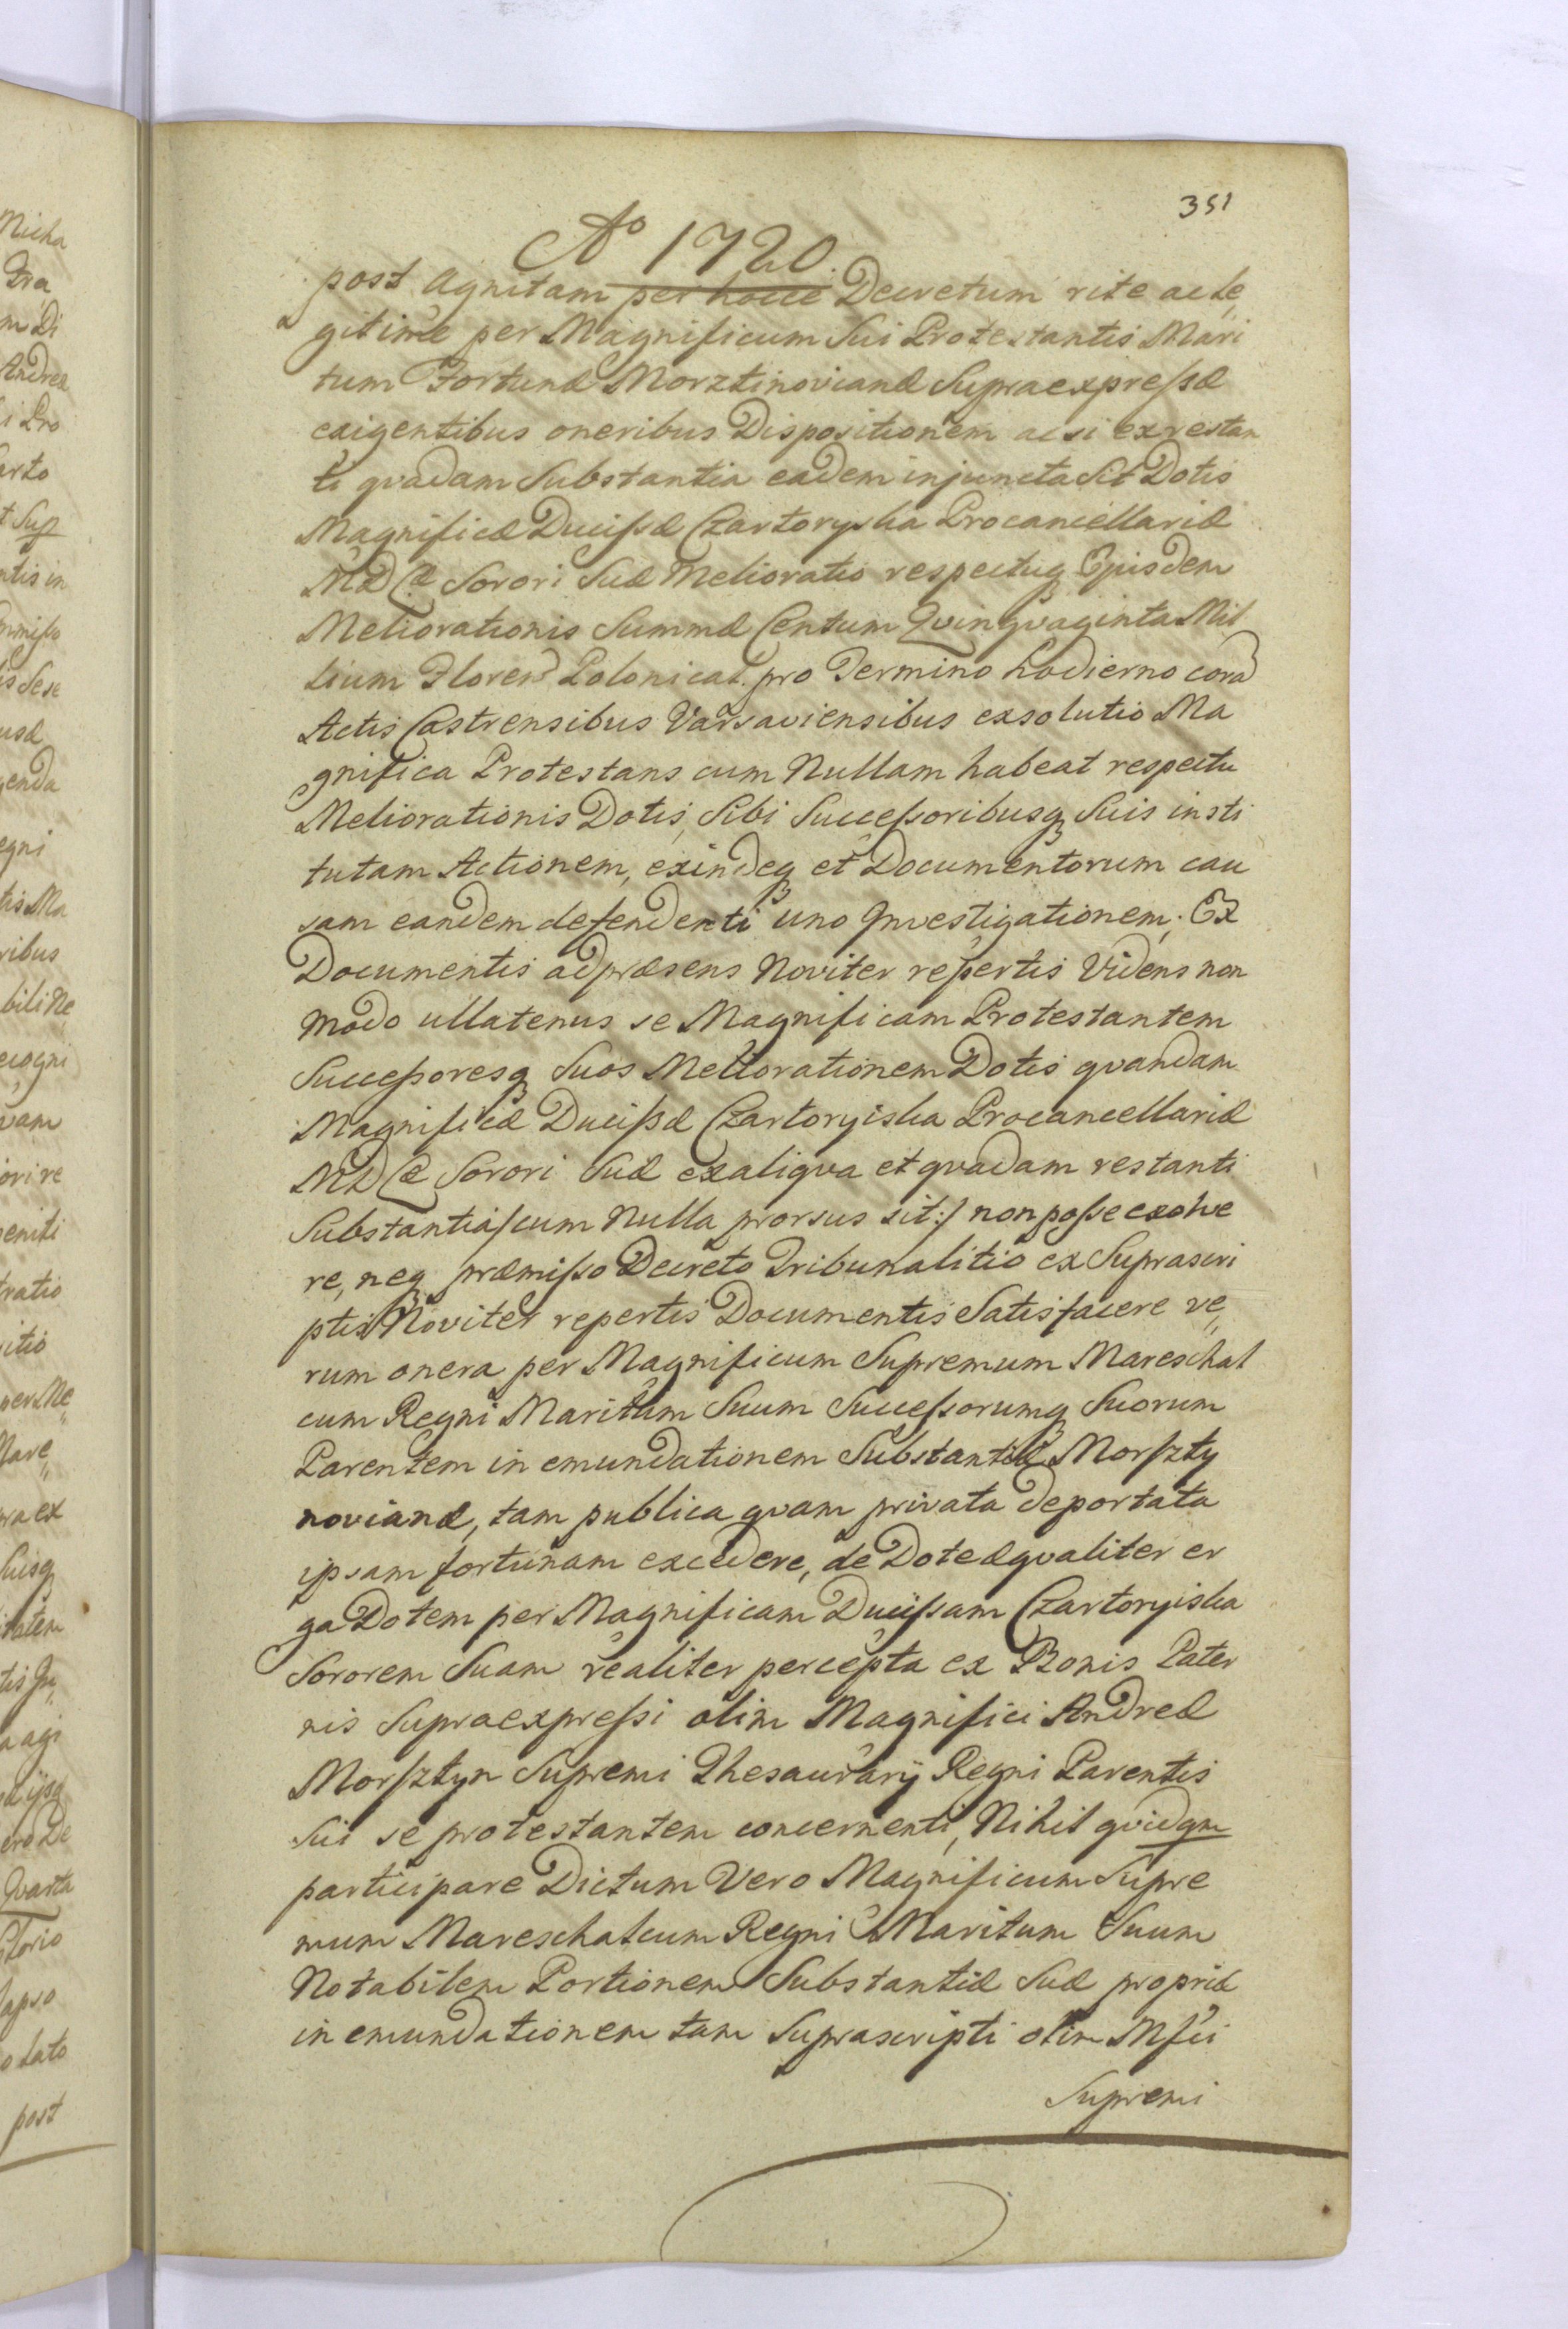 351
Ao 1720.
post agnitam per hocce Decretum rite ac le„
gitime per Magnificum Sui Protestantis Mari
tum Fortunæ Morztinovianæ Supraexpressæ
exigentibus oneribus Dispositionem acsi ex restan
ti quadam Substantia eadem injuncta sit Dotis
Magnificæ Ducissæ Czartoryska Procancellariæ
MDLæ Sorori Suæ Melioratio respectuq Ejusdem
Meliorationis Summæ Centum Qvinqvaginta Mil
lium Floren Polonical. pro Termino hodierno cora
Actis Castrensibus Varsaviensibus exsolutio Ma
gnifica Protestans cum Nullam habeat respectu
Meliorationis Dotis, Sibi Successoribusq Suis insti
tutam Actionem, exindeq et Documentorum cau
sam eandem defendenti uno Investigationem; Ex
Documentis ad præsens Noviter repertis Videns non
modo ullatenus se Magnificam Protestantem
Successoresq Suos Meliorationem Dotis qvandam
Magnificæ Ducissæ Czartoryiska Procancellariæ
MDLæ Sorori Suæ ex aliqva et qvadam restanti
Substantia/cum Nulla prorsus sit:/ non posse exolve
re, neq præmisso Decreto Tribunalitio ex Suprascri
ptis Noviter repertis Documentis Satisfacere ve„
rum onera per Magnificum Supremum Mareschal
cum Regni Maritum Suum Successorumq Suorum
Parentem in emundationem Substantiæ Morszty
novianæ, tam publica qvam privata deportata
ipsam fortunam excedere, de Dote æqvaliter er
ga Dotem per Magnificam Ducissam Czartoryiska
Sororem Suam realiter percepta ex Bonis Pater
nis Supraexpressi olim Magnifici Andreæ
Morsztyn Supremi Thesaurarij Regni Parentis
Sui se protestantem concernenti, Nihil qvidqm
participare Dictum Vero Magnificum Supre
mum Mareschalcum Regni Maritum Suum
Notabilem Portionem Substantiæ Suæ propriæ
in emundationem tam Suprascripti olim Mfci
Supremi